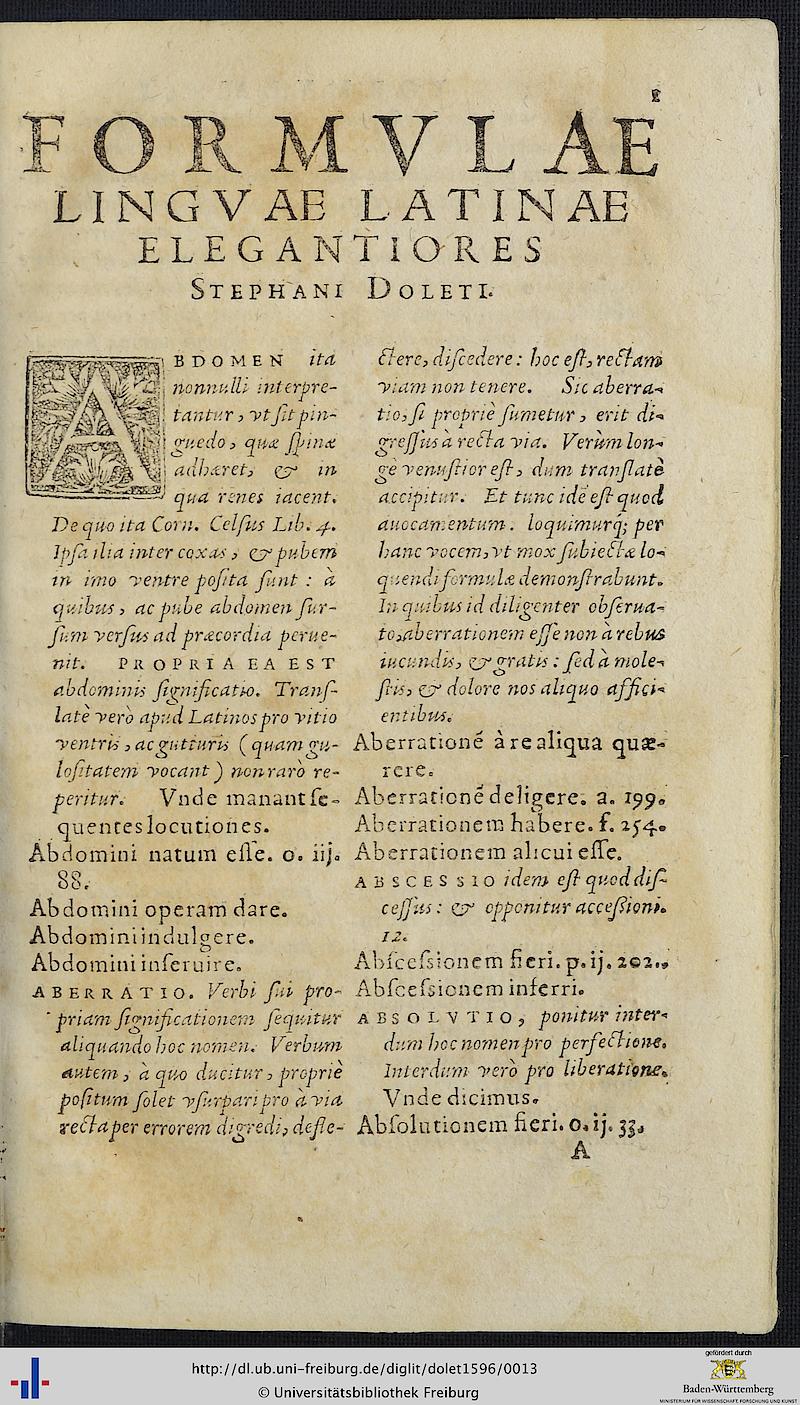 1
FORMVLAE
LINGVAE LATINAE
ELEGANTIORES
STEPHANI DOLETI.
ABDOMEN ita
nonnulli interpre-
tantur, vt ſit pin-
guedo, quæ ſpinæ
adhæret, & in
qua renes iacent.
De quo ita Corn. Celſus Lib. 4.
Ipſa ilia inter coxas, & pubem
in imo ventre poſita ſunt : à
quibus, ac pube abdomen ſur-
ſum verſus ad præcordia perue-
nit. PROPRIA EA EST
abdominis ſignificatio. Tranſ-
latè verò apud Latinos pro vitio
ventris, ac gutturis (quam gu-
loſitatem vocant) non rarò re-
peritur. Vnde manant ſe-
quentes locutiones.
Abdomini natum eſſe. o. iij.
88.
Abdomini operam dare.
Abdomini indulgere.
Abdomini inſeruire.
ABERRATIO. Verbi ſui pro-
priam ſignificationem ſequitur
aliquando hoc nomen. Verbum
autem, à quo ducitur, propriè
poſitum ſolet vſurpari pro à via
recta per errorem digredi, defle-
ctere, diſcedere : hoc eſt, rectam
viam non tenere. Sic aberra-
tio, ſi propriè ſumetur, erit di-
greſſus à recta via. Verùm lon-
gè venuſtior eſt, dum tranſlatè
accipitur. Et tunc idē eſt quod
auocamentum. loquimurq́; per
hanc vocem, vt mox ſubiectæ lo-
quendi formulæ demonſtrabunt.
In quibus id diligenter obſerua-
to, aberrationem eſſe non à rebus
iucundis, & gratis : ſed à mole-
ſtis, & dolore nos aliquo affici-
entibus.
Aberrationé à re aliqua quæ-
rere.
Aberrationé deligere. a. 199.
Aberrationem habere. f. 254.
Aberrationem alicui eſſe.
ABSCESSIO idem eſt quod diſ-
ceſſus : & opponitur acceſsioni.
12.
Abſceſsionem fieri. p. ij. 202.
Abſceſsionem inferri.
ABSOLVTIO, ponitur inter-
dum hoc nomen pro perfectione.
Interdum verò pro liberatione.
Vnde dicimus.
Abſolutionem fieri. o. ij. 33.
A
http://dl.ub.uni-freiburg.de/diglit/dolet1596/0013
© Universitätsbibliothek Freiburg
gefördert durch
Baden-Württemberg
MINISTERIUM FÜR WISSENSCHAFT, FORSCHUNG UND KUNST